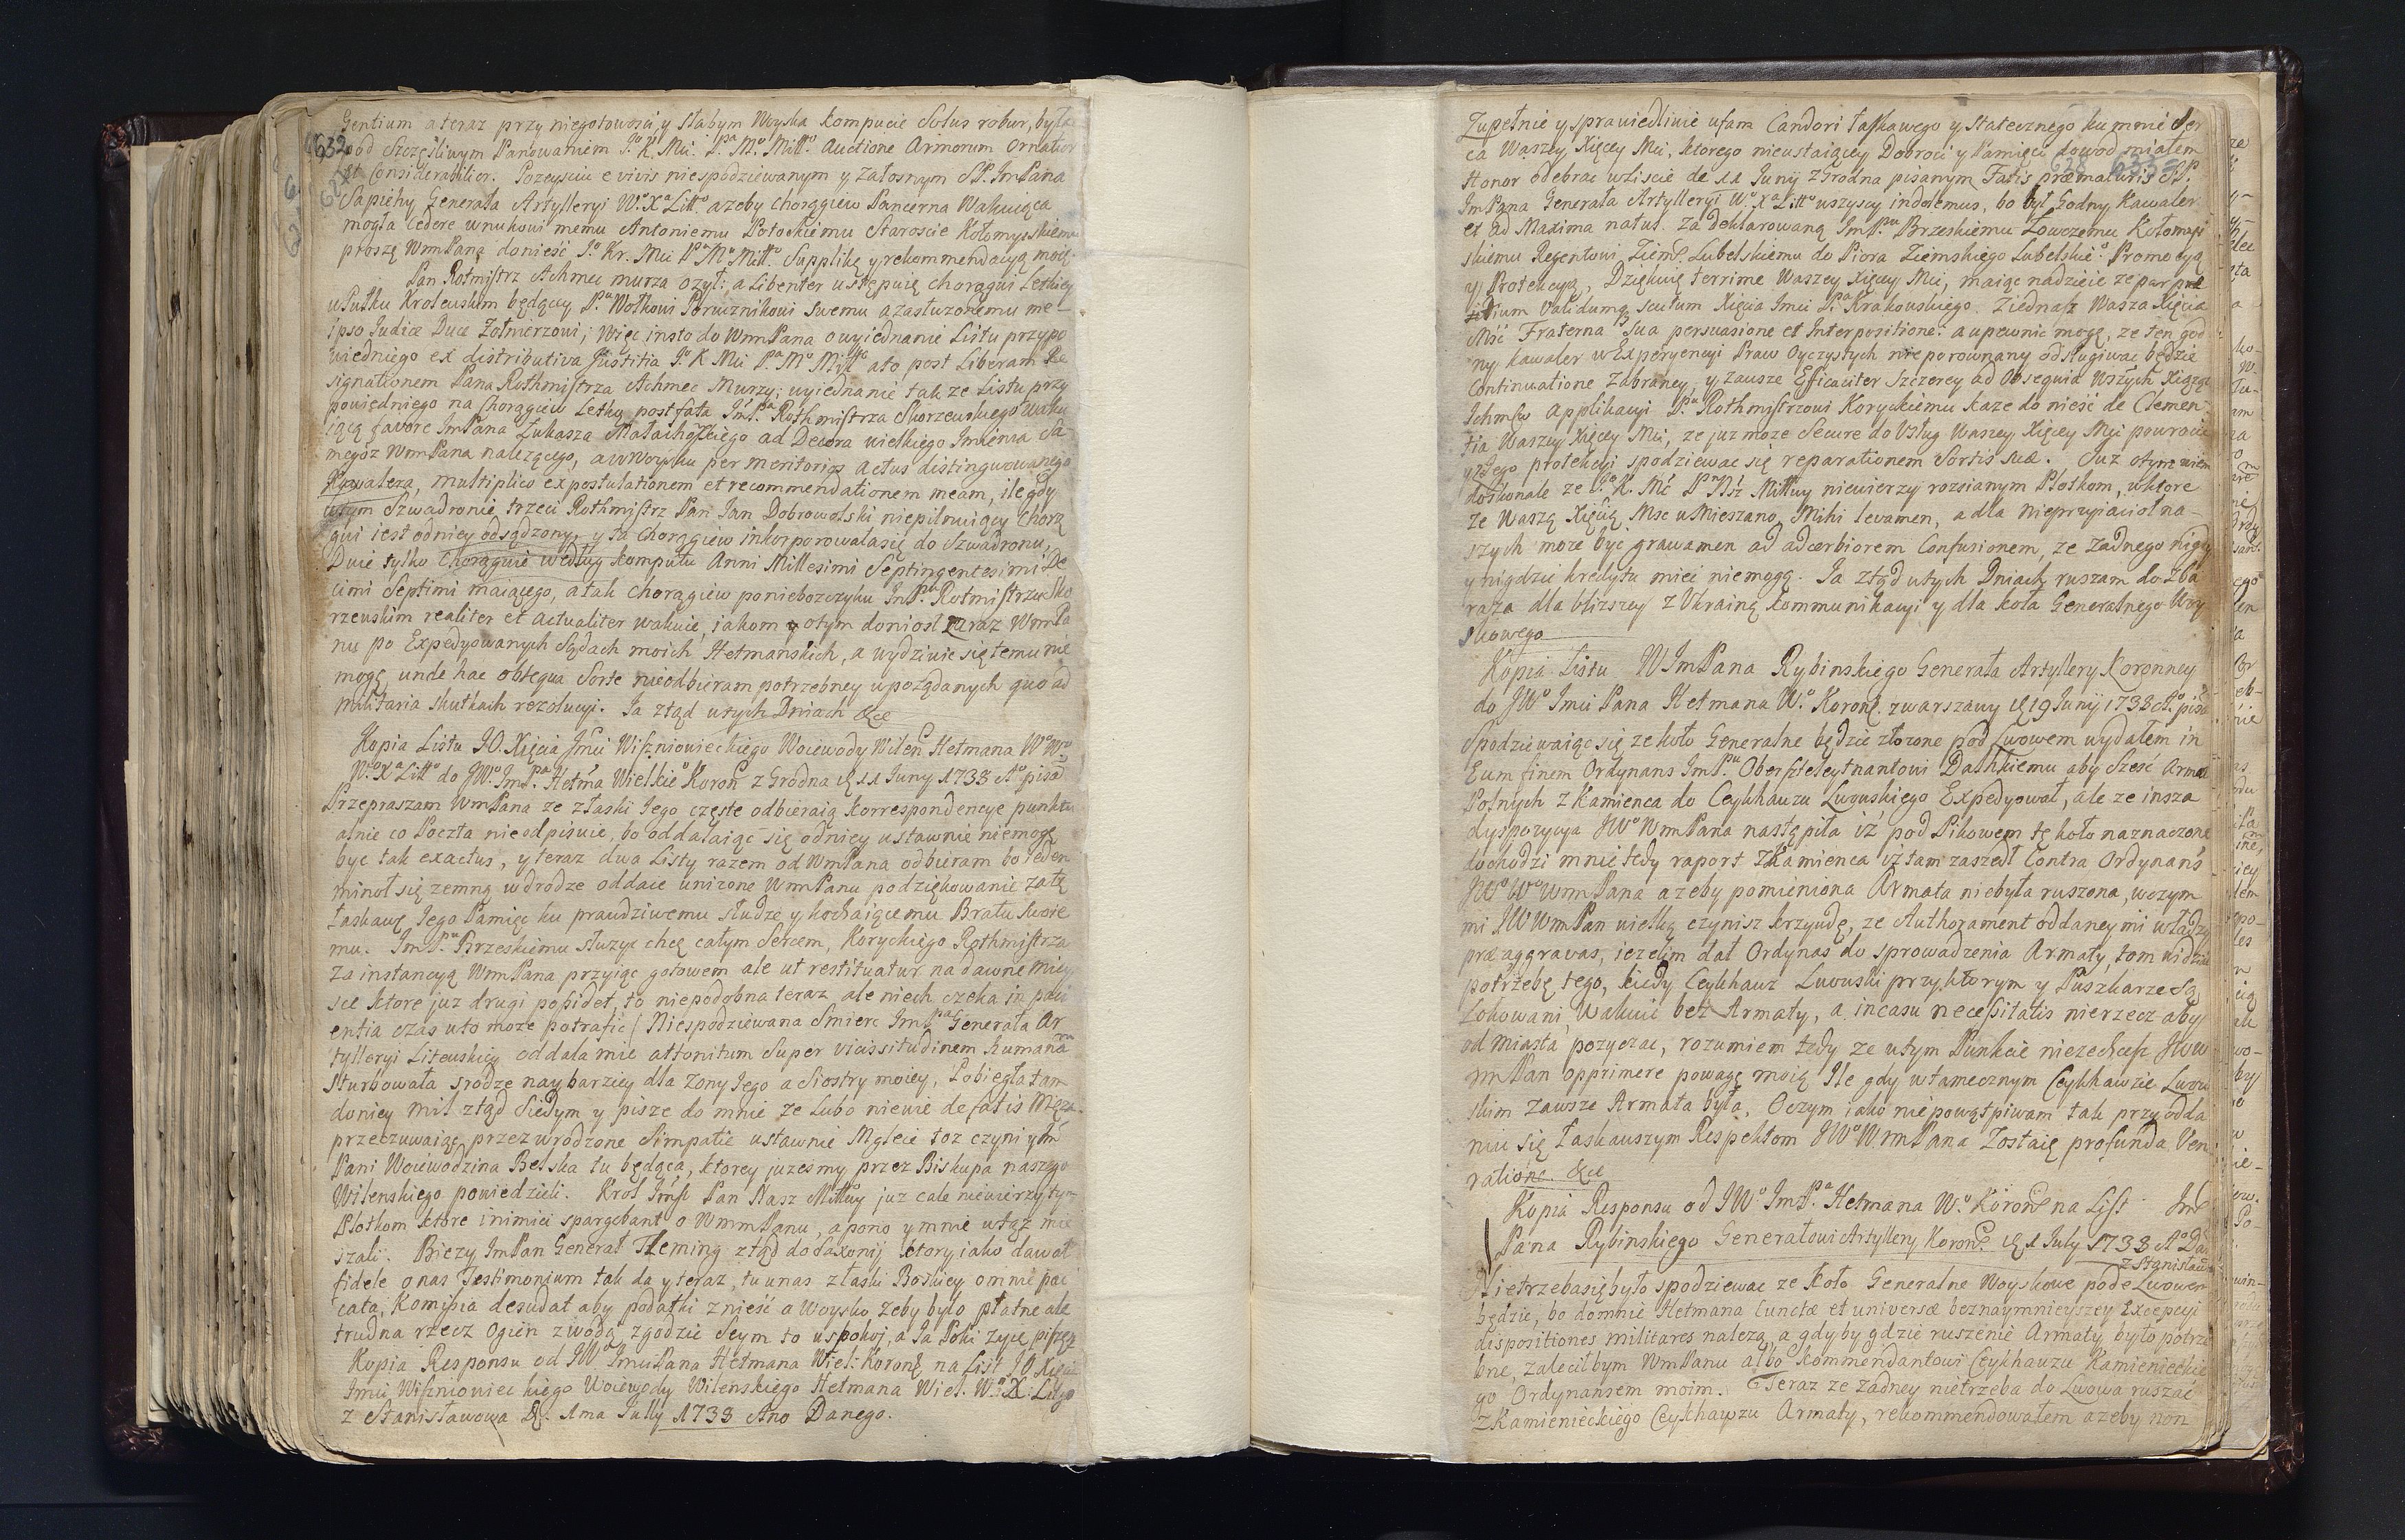 Gentium a teraz przy niegotowości y słabym Woyska kompucie Solus robur, była
pod szczęśliwym Panowaniem Jo K. Mci. Pa Mo Mitto Auctione Armorum ornatior
et Considerabilior. Po zeysciu e vivis niespodziewanym y żałosnym SP. ImPana
Sapiehy Generała Artylleryi Wo Xa Litto azeby chorągiew Pancerna Wakuiąca
mogła cedere wnukowi memu Antoniemu Potockiemu Staroscie Kołomyiskiemu
proszę WmPana donieść Jo Kr. Mci Pa Mo Mitto Supplikę y rekommendacyą moię
Pan Rotmistrz Achmec murza ozył: a Libenter ustępuię chorągwi Letkiey
w Pułku Krolewskim będący Pu Wołkowi Porucznikowi Swemu a zasłuzonemu me
ipso Iudice Duce Zołnierzowi; więc insto do WmPana o wyiednanie Listu przypo
wiedniego ex distributiva Justitia Jo K Mci Pa Mo Mitto ato post Liberam Re
signationem Pana Rothmistrza Achmec Murzy; wyiednanie tak ze Listu przy
powiedniego na Chorągiew Letką post fata ImPa Rothmistrza Skorzewskiego waku
iącą favore ImPana Łukasza Małachowskiego ad Decora wielkiego Imienia Sa
megoz WmPana nalezącego, a w Woysku per meritorios actus distingwowanego
Kawalera, multiplico expostulationem et recommendationem meam, ile gdy
w tym Szwadronie trzeci Rothmistrz Pan Jan Dobrowolski niepilnuiący Chorą
gwi iest od niey odsądzony, y ta Chorągiew inkorporowała się do Szwadronu,
Dwie tylko Chorągwie według komputu Anni Millesimi Septingentesimi De
cimi Septimi maiącego, a tak Chorągiew po nieboszczyku ImPu Rotmistrzu Sko
rzewskim realiter et actualiter wakuie, iakom y o tym doniosł zaraz WmPa
nu po Expedyowanych Sądach moich Hetmanskich, a wydziwic się temu nie
mogę unde hac obsequa Sorte nieodbieram potrzebney w pożądanych quo ad
militaria skutkach rezolucyi. Ja ztąd w tych Dniach &c
Kopia Listu JO. Xięcia Jmci Wiszniowieckiego Woiewody Wilen Hetmana Wo
Wo Xa Litto do JWo ImPa Hetma Wielkieo Koron z Grodna d 11 Juny 1738 Ao pisa
Przepraszam WmPana ze z łaski Jego częste odbieraią korrespondencye punktu
alnie co Poczta nieodpisuie, bo oddalaiąc się od niey ustawnie niemogę
byc tak exactus, y teraz dwa Listy razem od WmPana odbieram bo ieden
minoł się zemną w drodze oddaie unizone WmPanu podziękowanie za tę
łaskawą Jego Pamięc ku prawdziwemu słudze y kochaiącemu Bratu Swoie
mu. ImPu Brzeskiemu słuzyc chcę całym Sercem, Koryckiego Rothmistrza
za instancyą WmPana przyiąc gotowem ale ut restituatur na dawne miey
sce ktore juz drugi possidet, to niepodobna teraz, ale niech czeka in pati
entia czas u to moze potrafic / Niespodziewana Smierc ImPa Generała Ar
tylleryi Litewskiey oddała mie attonitum Super vicissitudinem humanam
sturbowała srodze naybarziey dla Zony Jego a Siostry moiey, Pobiegła tam
do niey mil ztąd Siedym y pisze do mnie ze Lubo niewie de fatis Męza
przeczuwaiąc przez wrodzone Simpatie ustawnie Mgleie toz czyni y Im
Pani Woiewodzina Bełska tu będąca, ktorey juzesmy przez Biskupa naszego
Wilenskiego powiedzieli. Krol Jmsc Pan Nasz Miłłwy juz cale niewierzy tym
Plotkom ktore inimici spargebant o WmmPanu, a pono y mnie w tąz mie
szali. Biezy ImPan Generał Fleming ztąd do Saxonij ktory iako dawał
fidele o nas Testimonium tak da y teraz, tu u nas z łaski Boskiey omnie pac
cata, Komissia desudat aby podatki znieść a Woysko zeby było płatne ale
trudna rzecz Ogien z wodą zgodzic Seym to uspokoi, a Ja Poki zyię piszę
Kopia Responsu od JWo Jmci Pana Hetmana Wiel: Koronẽ na List JO Xięcia
Imci Wiszniowieckiego Woiewody Wilenskiego Hetmana Wiel. Wo X. Litgo
z Stanisławowa D. 1ma July 1738 Ano Danego.
632
Zupełnie y sprawiedliwie ufam Candori łaskawego y statecznego ku mnie Ser
ca Waszey Xięcey Mci, ktorego nieustaiącey Dobroci y Pamięci dowod miałem
Honor odebrac w Liscie de 11 Junij z Grodna pisanym. Fatis praematuris SP
ImPana Generała Artylleryi Wo Xa Litto wszyscy indolemus, bo był Godny Kawaler
et ad Maxima natus. Za deklarowaną ImPu Brzeskiemu Łowczemu Kołomyi
skiemu Regentowi Ziem. Lubelskiemu do Piora Ziemskiego Lubelskieo Promocyą
y Protekcyą, Dziękuię terrime Waszey Xięcey Mci, maiąc nadzieię ze par prae
sidium validumq scutum Xięcia Imci Pa Krakowskiego. Ziednasz Wasza Xięca
Mść Fraterna Sua persuasione et Interpositione: a upewnic mogę, ze ten god
ny kawaler w Experyencyi Praw Oyczystych nieporownany odsługiwac będzie
Continuatione Zabraney, y zawsze Efficaciter szczerey ad Obsequia Wszych Xiążąt
Ichmsw applikacyi. Pu Rothmistrzowi Koryckiemu kaze donieść de Clemen
tia Waszey Xięcey Mci, ze juz moze Secure do Usług Waszey Xięcey Mci powrocic
y Jego protekcyi spodziewac się reparationem Sortis suae. Juz o tym wiem
doskonale ze Jo K. Mć Pn Nsz Miłłwy niewierzy rozsianym Plotkom, w ktore
ze Waszą Xięcią Msc wmieszano, Mihi levamen, a dla nieprzyiacioł na-
szych moze byc grawamen ad acerbiorem Confusionem, ze zadnego nigdy
y nigdzie kredytu miec niemogą. Ja ztąd w tych Dniach ruszam do Zba
raza dla blizszey z Ukrainą kommunikacyi y dla koła Generalnego Woy
skowego
Kopia Listu WImPana Rybinskiego Generała Artyllery Koronney
do JWo Imci Pana Hetmana Wo. Koronẽ. z Warszawy d 19 Junij 1738 Ao pisa
Spodziewaiąc się ze koło Generalne będzie złozone pod Lwowem wydałem in
Eum finem Ordynans ImPu Obersztelytnantowi Dahlkiemu aby sześć Armat
Polnych z Kamienca do Ceykhauzu Lwowskiego Expedyował, ale ze insza
dyspozycya JWo WmPana nastąpiła iż pod Pikowem tę koło naznaczone
dochodzi mnie tedy raport z Kamienca iż tam zaszedł Contra Ordynans
JWo WoWmPana azeby pomieniona Armata niebyła ruszona, w czym
mi JWWmPan wielką czynisz krzywdę, ze Authorament oddaney mi władzy
praeaggravas, iezelim dał Ordynas do sprowadzenia Armaty, tom widział
potrzebę tego, kiedy Ceykhauz Lwowski przy ktorym y Puszkarze Są
Lokowani, wakuie bez Armaty, a in casu necessitatis nierzecz aby
od miasta pozyczac, rozumiem tedy ze w tym Punkcie niezechcesz JWW
mPan opprimere powagę moią Ile gdy w tamecznym Ceykhauzie Lwow
skim zawsze Armata była, O czym iako niepowątpiwam tak przy odda
niu się łaskawszym Respektom JWo WmPana Zostaię profunda Ven
ratione. &c
Kopia Responsu od JWo ImPa. Hetmana Wo. Koronẽ na List Im
Pana Rybinskiego Generałowi Artyllery Koronẽ. d 1 July 1738 Ao Da
z Stanisław
Nietrzeba się było spodziewac ze Koło Generalne Woyskowe pode Lwowem
będzie, bo do mnie Hetmana Cunctae et universae beznaymnieyszey Excepcyi
dispositiones militares nalezą, a gdyby gdzie ruszenie Armaty było potrze
bne, zaleciłbym WmPanu albo kommendantowi Ceykhauzu Kamienieckie
go Ordynansem moim. Teraz ze zadney nietrzeba do Lwowa ruszac
z Kamienieckiego Ceykhauzu Armaty, rekommendowałem azeby non